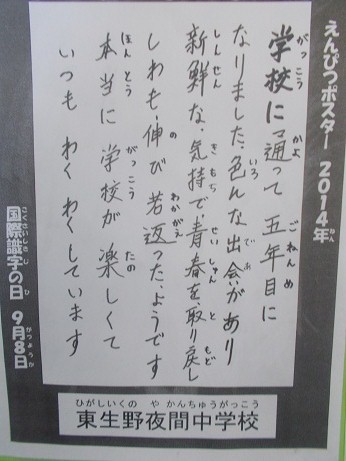 えんぴつポスター 2014年
学校に通って五年目に
なりました、色んな出会があり
新鮮な、気持で青春を、取り戻し
しわも、伸び若返った、ようです
本当に学校が楽しくて
いつもわくわくしています
国際識字の日 9月8日
ひがしいくの や かんちゅうがっこう
東生野夜間中学校